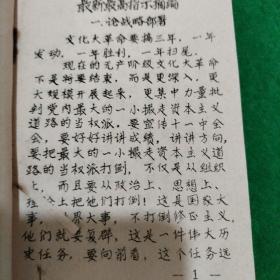 最新最高指示摘编
一.论战略部署
文化大革命要搞三年,一年
发动,一年胜利,一年扫尾。
现在的无产阶级文化大革命
不是将要结束,而是更深入,更
大规模开展起来,更集中力量批
判党内最大的一小撮走资本主义
道路的当权派,要宣传十一中全
会,要好好讲讲成绩,讲讲方向,
要把最大的一小撮走资本主义道
路的当权派打倒,不仅是从组织
上,而且要从政治上、思想上、
理论上把他们打倒!这是国家大
事,世界大事,不打倒修正主义,
他们就要复辟,这是一件伟大历
史任务,要向前看,这个任务远
— 1 —